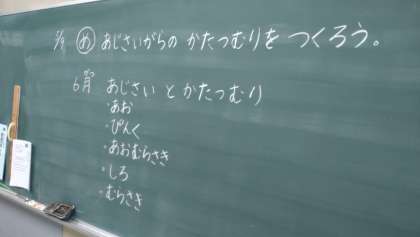 5/9 め あじさいがらの かたつむりを つくろう。
6月 がつ あじさい と かたつむり
・あお
・ぴんく
・あおむらさき
・しろ
・むらさき